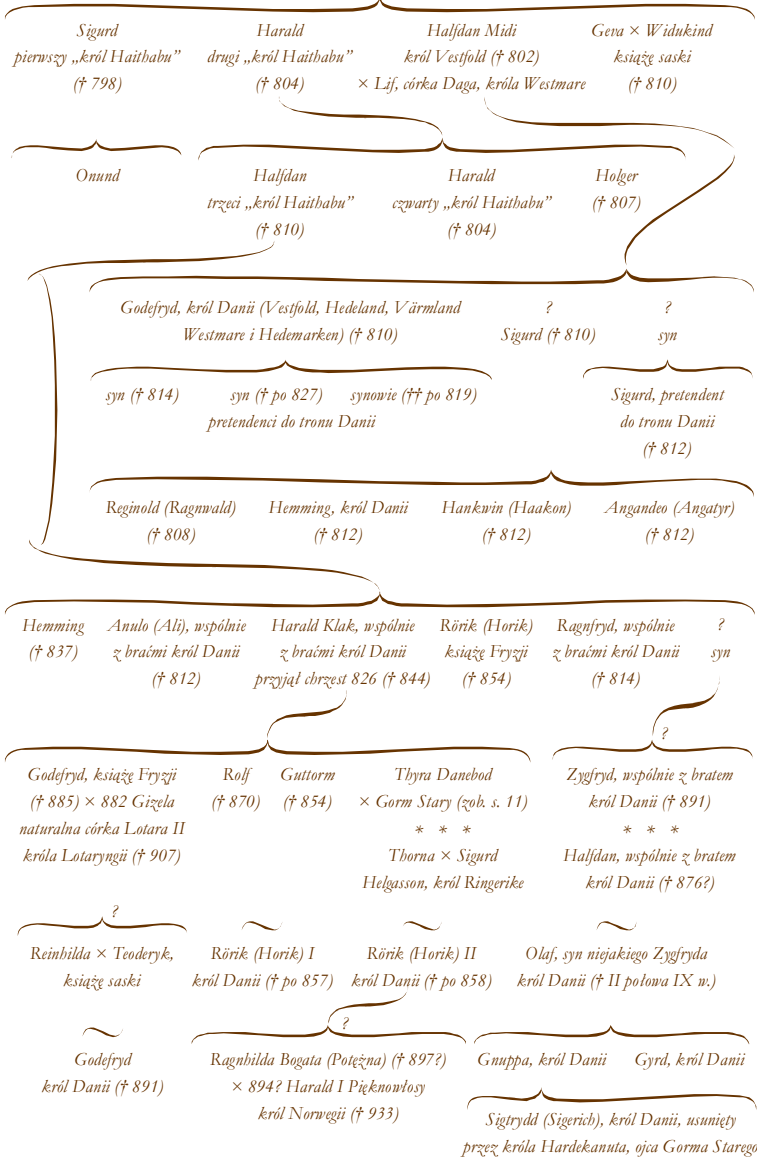 Sigurd
pierwszy „król Haithabu”
(† 798)
Harald
drugi „król Haithabu”
(† 804)
Halfdan Midi
król Vestfold († 802)
× Lif, córka Daga, króla Westmare
Geva × Widukind
książę saski
(† 810)
Onund
Halfdan
trzeci „król Haithabu”
(† 810)
Harald
czwarty „król Haithabu”
(† 804)
Holger
(† 807)
Godefryd, król Danii (Vestfold, Hedeland, Värmland
Westmare i Hedemarken) († 810)
?
Sigurd († 810)
?
syn
syn († 814)
syn († po 827)
synowie (†† po 819)
pretendenci do tronu Danii
Sigurd, pretendent
do tronu Danii
(† 812)
Reginold (Ragnwald)
(† 808)
Hemming, król Danii
(† 812)
Hankwin (Haakon)
(† 812)
Angandeo (Angatyr)
(† 812)
Hemming
(† 837)
Anulo (Ali), wspólnie
z braćmi król Danii
(† 812)
Harald Klak, wspólnie
z braćmi król Danii
przyjął chrzest 826 († 844)
Rörik (Horik)
książę Fryzji
(† 854)
Ragnfryd, wspólnie
z braćmi król Danii
(† 814)
?
syn
?
Godefryd, książę Fryzji
(† 885) × 882 Gizela
naturalna córka Lotara II
króla Lotaryngii († 907)
Rolf
(† 870)
Guttorm
(† 854)
Thyra Danebod
× Gorm Stary (zob. s. 11)
* * *
Thorna × Sigurd
Helgasson, król Ringerike
Zygfryd, wspólnie z bratem
król Danii († 891)
* * *
Halfdan, wspólnie z bratem
król Danii († 876?)
?
Reinhilda × Teoderyk,
książę saski
~
Rörik (Horik) I
król Danii († po 857)
~
Rörik (Horik) II
król Danii († po 858)
~
Olaf, syn niejakiego Zygfryda
król Danii († II połowa IX w.)
~
Godefryd
król Danii († 891)
?
Ragnhilda Bogata (Potężna) († 897?)
× 894? Harald I Pięknowłosy
król Norwegii († 933)
Gnuppa, król Danii
Gyrd, król Danii
Sigtrydd (Sigerich), król Danii, usunięty
przez króla Hardekanuta, ojca Gorma Starego